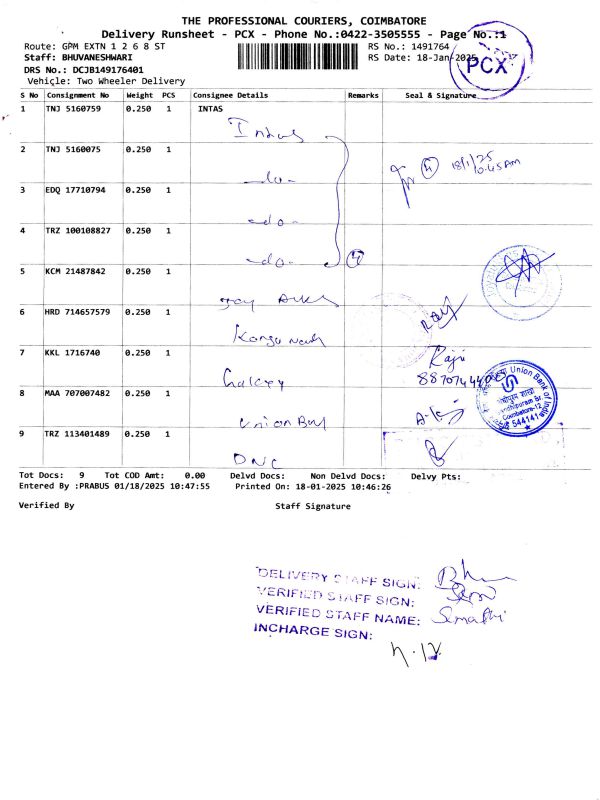 THE PROFESSIONAL COURIERS, COIMBATORE
Delivery Runsheet - PCX - Phone No.:0422-3505555 - Page No.:1
Route: GPM EXTN 1 2 6 8 ST
RS No.: 1491764
Staff: BHUVANESHWARI
RS Date: 18-Jan-2025
PCX
DRS No.: DCJB149176401
Vehicle: Two Wheeler Delivery
S No Consignment No Weight PCS Consignee Details Remarks Seal & Signature
1 TNJ 5160759 0.250 1 INTAS
Intas
2 TNJ 5160075 0.250 1
-do-
4 18/1/25
10.45 AM
3 EDQ 17710794 0.250 1
-do-
4 TRZ 100108827 0.250 1
-do- 4
5 KCM 21487842 0.250 1
6 HRD 714657579 0.250 1
7 KKL 1716740 0.250 1
Raju
Galaxy
8 MAA 707007482 0.250 1
Union Bank of India
Coimbatore-12
544141
Union Bank
9 TRZ 113401489 0.250 1
DNC
Tot Docs: 9 Tot COD Amt: 0.00 Delvd Docs: Non Delvd Docs: Delvy Pts:
Entered By :PRABUS 01/18/2025 10:47:55 Printed On: 18-01-2025 10:46:26
Verified By Staff Signature
DELIVERY STAFF SIGN:
VERIFIED STAFF SIGN:
VERIFIED STAFF NAME: Sumathi
INCHARGE SIGN: